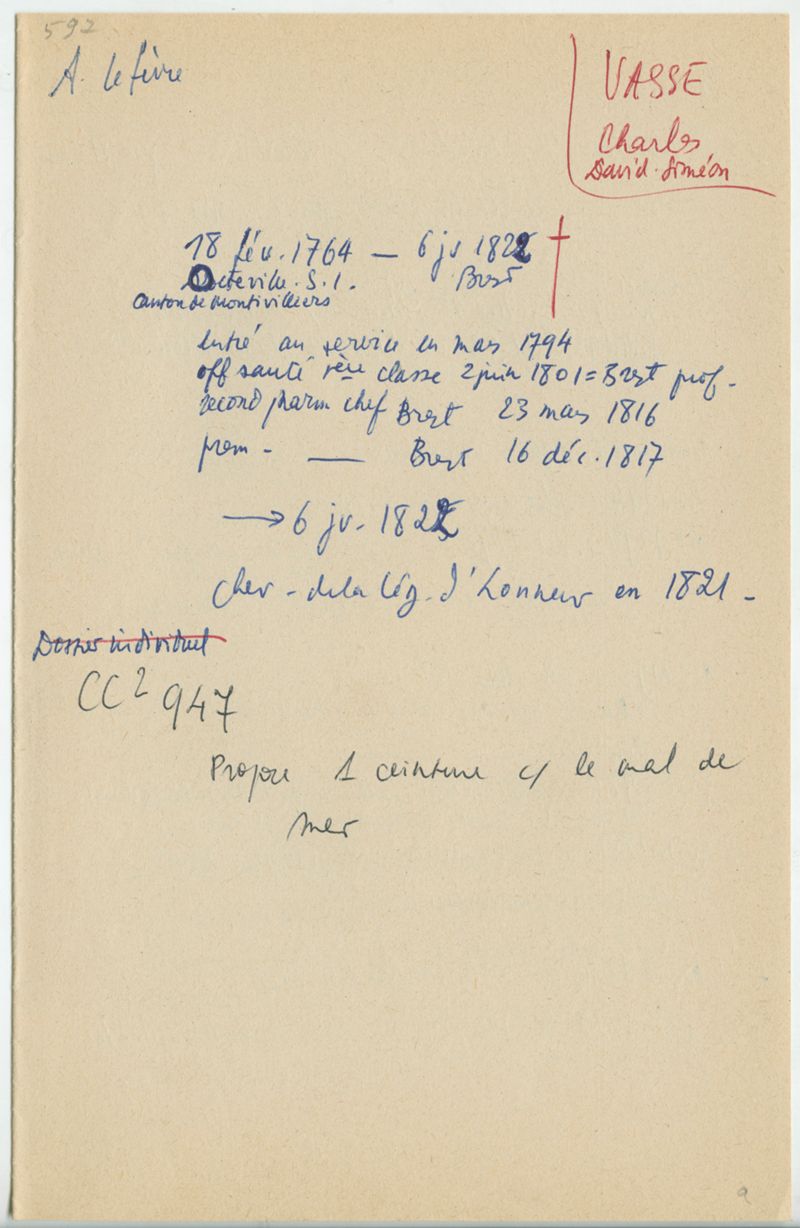 592
A. Lefèvre
VASSE
Charles
David-Siméon
18 fév. 1764 — 6 jv 1822 †
Octeville. S. I. Brest
Canton de Montivilliers
entré au service en mars 1794
off santé 1ère classe 2 juin 1801 = Brest prof.
second pharm chef Brest 23 mars 1816
prem - — Brest 16 déc. 1817
→ 6 jv. 1822
chev - de la Lég. d'honneur en 1821 -
Dossier individuel
CC2 947
Propose 1 ceinture c/ le mal de
mer